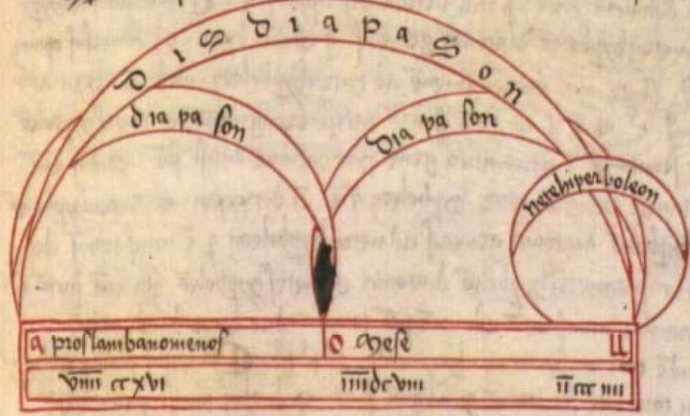 DiSdiapaSon
dia pa ſon
Dia pa ſon
netehiperboleon
a proſlambanomenoſ o Meſe ll
v̅i̅i̅i̅i̅ ccxvi i̅i̅i̅i̅dcviii i̅i̅ccciiii